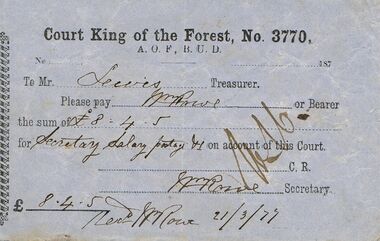 Court King of the Forest, No. 3770,
A. O. F., B. U. D.
No 187
To Mr. Lewis Treasurer.
Please pay Wm Rowe or Bearer
the sum of £8.4.5
for Secretary Salary on account of this Court.
C. R.
Wm Rowe Secretary.
£ 8.4.5
Recd W Rowe 21/3/79